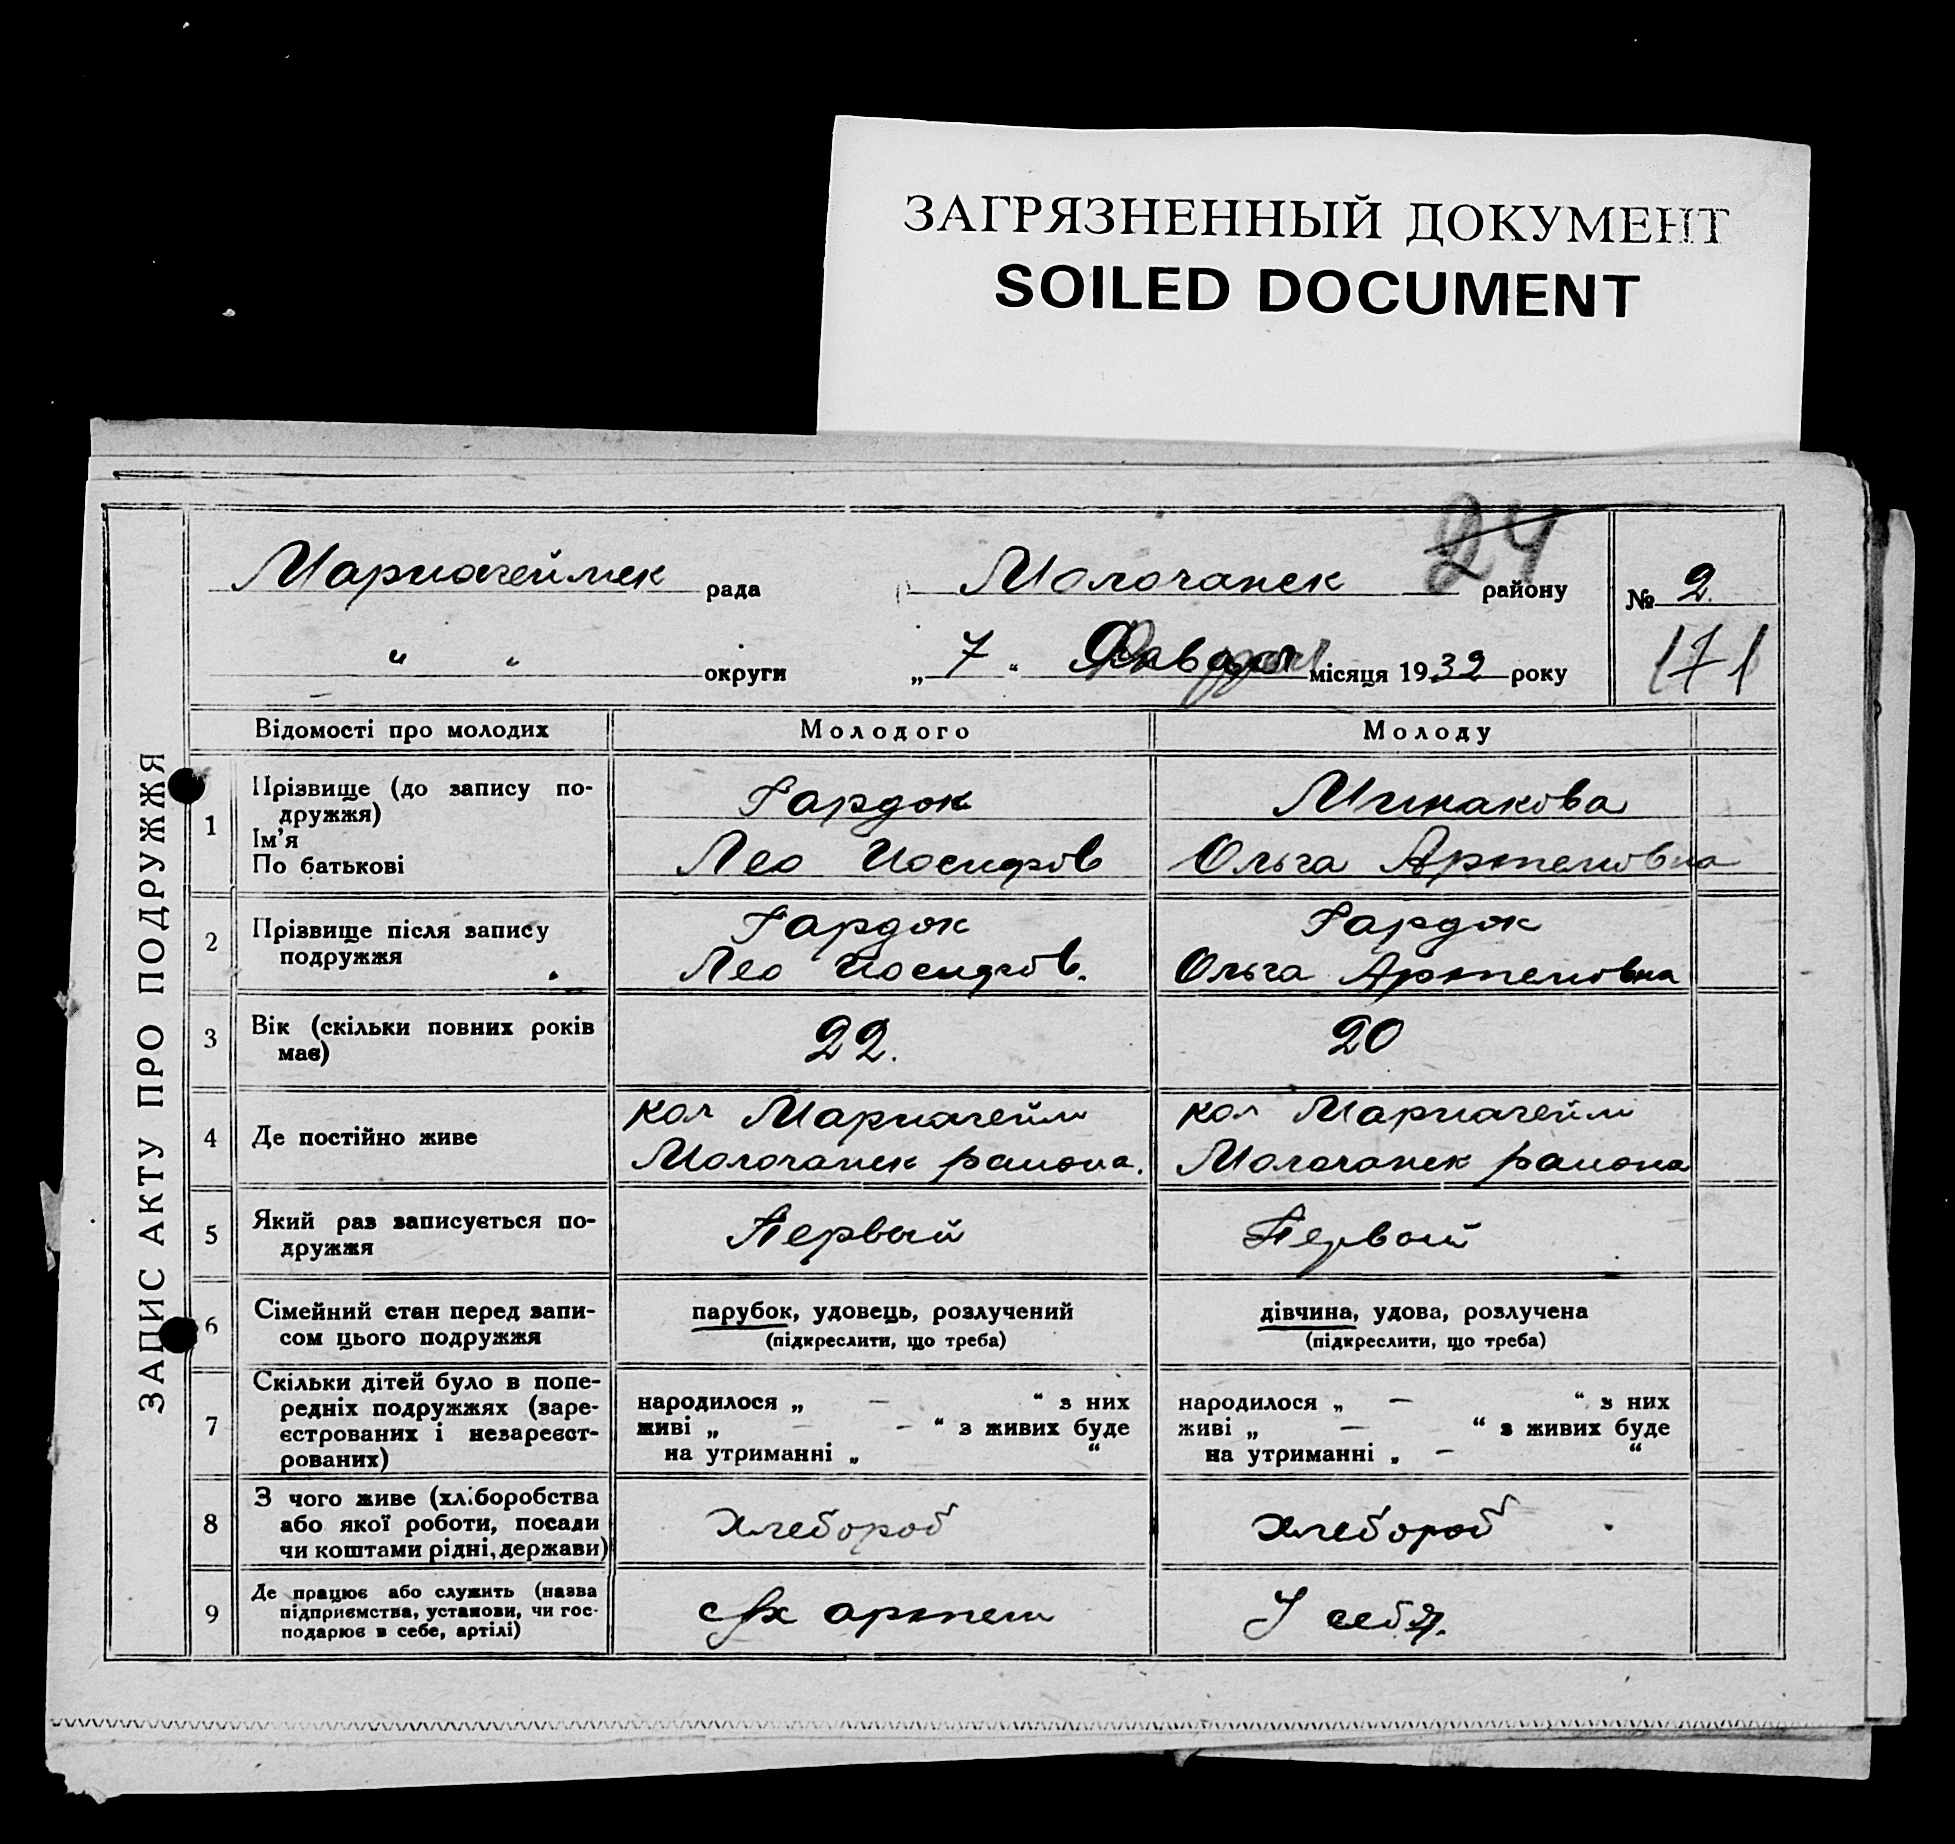 ЗАГРЯЗНЕННЫЙ ДОКУМЕНТ
SOILED DOCUMENT
ЗАПИС АКТУ ПРО ПОДРУЖЖЯ
24
Мариагеймск рада Молочанск району № 2.
" " округи „ 7 " Января місяця 1932 року 171
Відомості про молодих Молодого Молоду
1 Прізвище (до запису по-
дружжя)
Ім'я
По батькові
Гардок
Лео Иосифов
Минакова
Ольга Артемовна
2 Прізвище після запису
подружжя
Гардок
Лео Иосифов.
Гардок
Ольга Артемовна
3 Вік (скільки повних років
має)
22.
20
4 Де постійно живе
кол Мариагейм
Молочанск района.
кол Мариагейм
Молочанск района
5 Який раз записується по-
дружжя
Первый
Первый
6 Сімейний стан перед запи-
сом цього подружжя
парубок, удовець, розлучений
(підкреслити, що треба)
дівчина, удова, розлучена
(підкреслити, що треба)
7 Скільки дітей було в попе-
редніх подружжях (заре-
єстрованих і незареєст-
рованих)
народилося „ — “ з них
живі „ — “ з живих буде
на утриманні „ “
народилося „ — “ з них
живі „ — “ з живих буде
на утриманні „ — “
8 З чого живе (хліборобства
або якої роботи, посади
чи коштами рідні, держави)
Хлебороб
Хлебороб
9 Де працює або служить (назва
підприємства, установи, чи гос-
подарює в себе, артілі)
с/х артели
У себя.